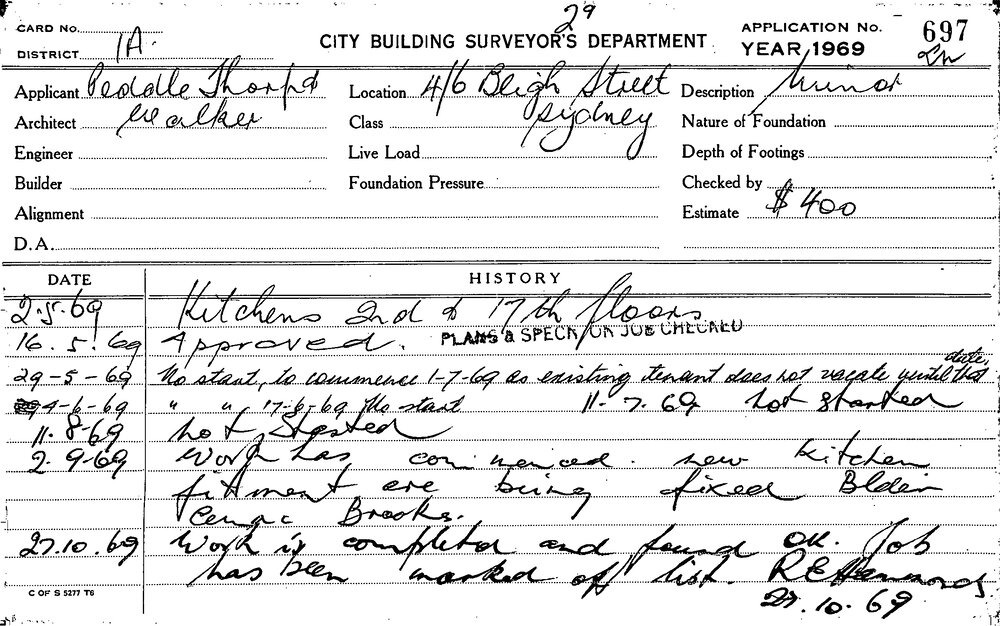 29
CARD No.
DISTRICT 1A.
CITY BUILDING SURVEYOR'S DEPARTMENT
APPLICATION No. 697
YEAR, 1969
Applicant Peddle Thorp &
Architect Walker
Location 4/6 Bligh Street
Sydney
Description Minor
Class
Nature of Foundation
Engineer
Live Load
Depth of Footings
Builder
Foundation Pressure
Checked by
Alignment
Estimate $ 400
D.A.
DATE HISTORY
2.5.69 Kitchens 2nd & 17th floors
16.5.69 Approved. PLANS & SPECN ON JOB CHECKED
29-5-69 No start, to commence 1-7-69 as existing tenant does not vacate until that date.
4-6-69 " " 17-6-69 No start 11.7.69 not started
11.8.69 not started
2.9.69 Work has commenced. new kitchen
fitment are being fixed
Brooks.
27.10.69 Work is completed and found OK. Job
has been marked off list. R E Hammonds.
27.10.69
C OF S 5277 T6